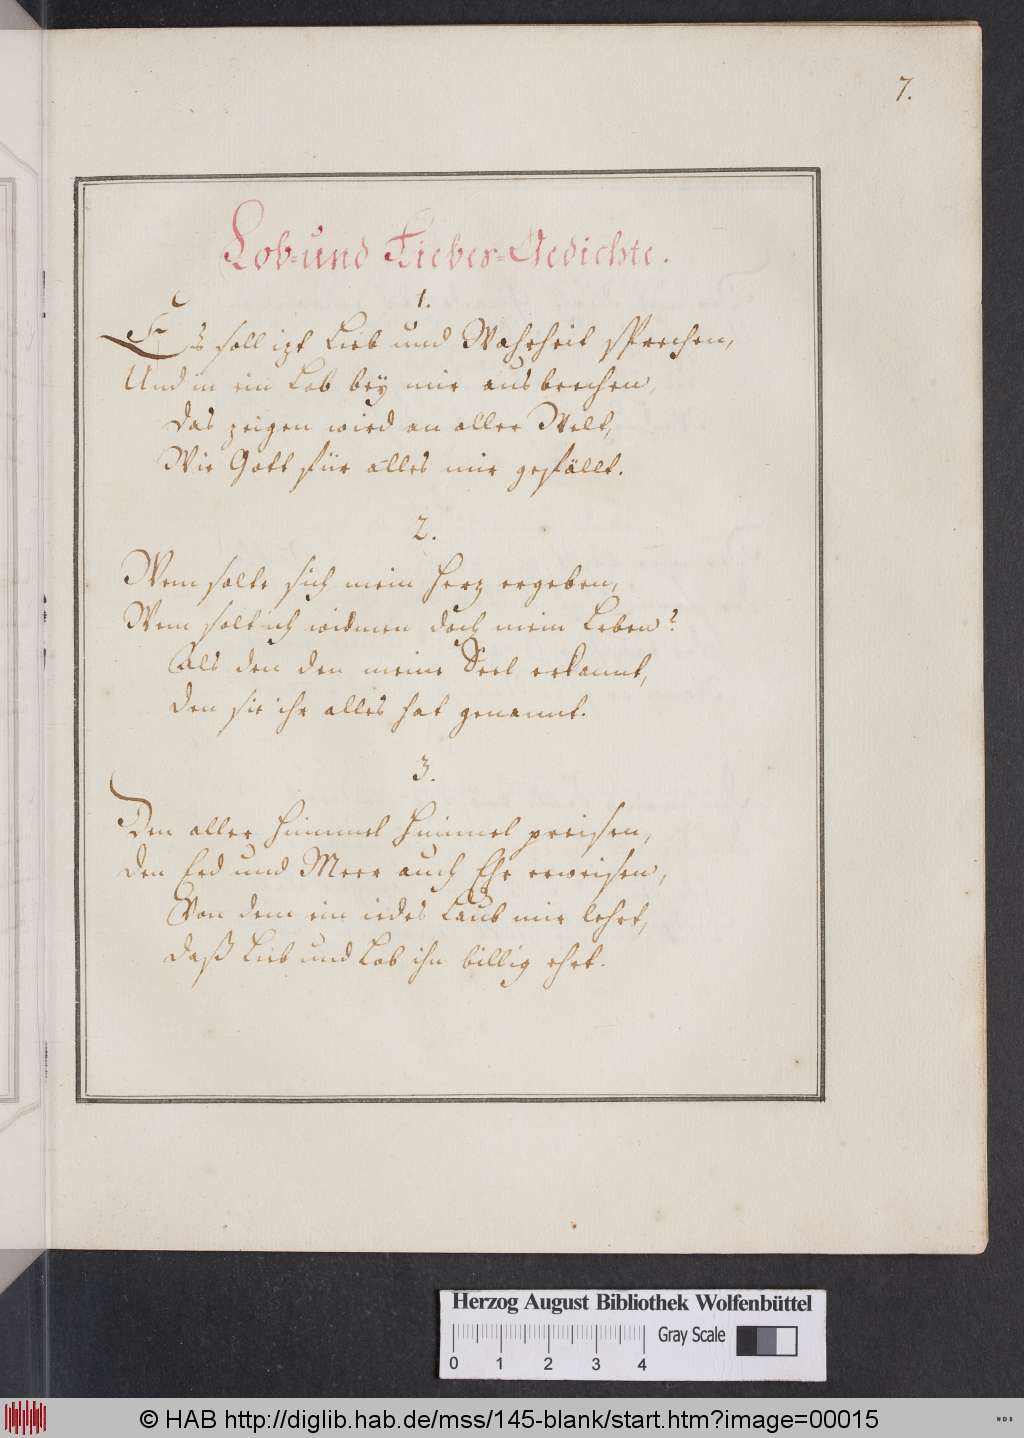 7.
Lob- und Liebes-Gedichte.
1.
Es soll izt Lieb und Wahrheit sprechen,
Und in ein Lob bey mir ausbrechen,
Das zeigen wird an aller Welt,
Wie Gott für alles mir gefällt.
2.
Wem solte sich mein Herz ergeben,
Wem solt ich widmen doch mein Leben?
Als den den meine Seel erkannt,
Den sie ihr alles hat genannt.
3.
Den aller Himmel Himmel preisen,
Den Erd und Meer auch Ehr erweisen,
Von dem ein iedes Laub mir lehrt,
Daß Lieb und Lob ihn billig ehrt.
Herzog August Bibliothek Wolfenbüttel
Gray Scale
0 1 2 3 4
© HAB http://diglib.hab.de/mss/145-blank/start.htm?image=00015